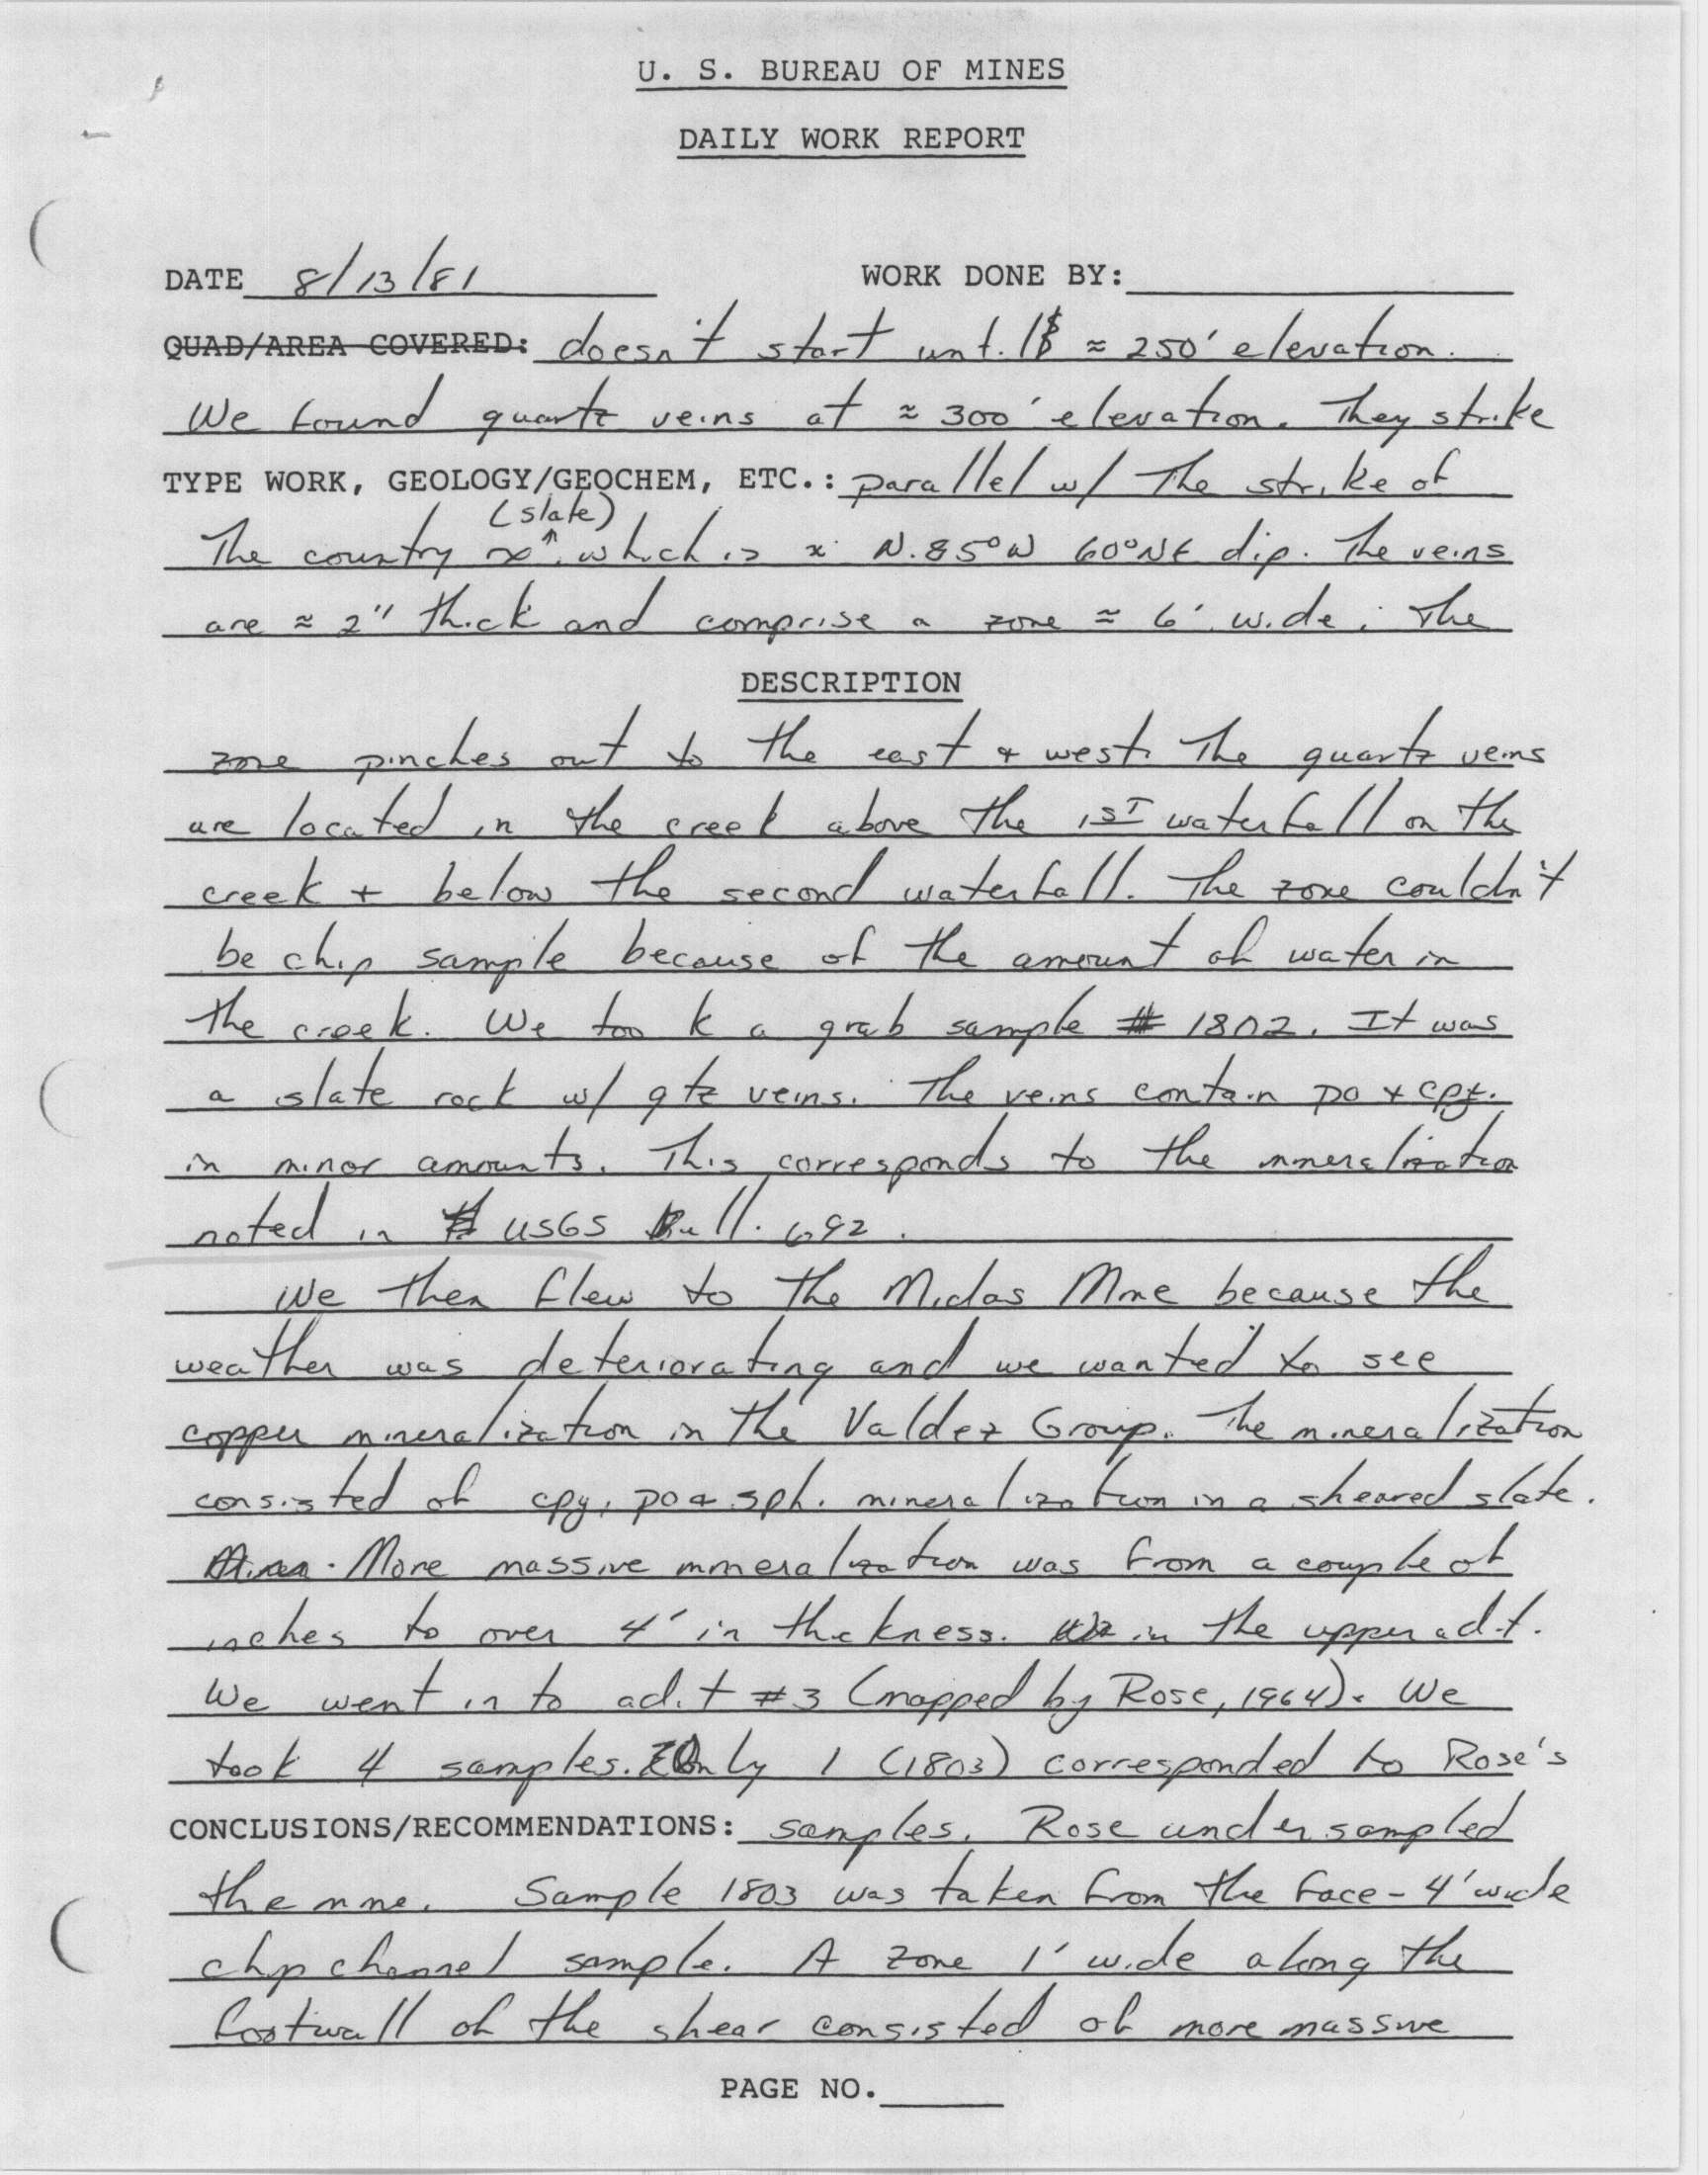 U. S. BUREAU OF MINES
DAILY WORK REPORT
DATE 8/13/81 WORK DONE BY:
QUAD/AREA COVERED: doesn't start until ≈ 250' elevation.
We found quartz veins at ≈ 300' elevation. They strike
TYPE WORK, GEOLOGY/GEOCHEM, ETC.: parallel w/ The strike of
(slate)
The country rx which is ≈ N.85°W 60°NE dip. The veins
are ≈ 2" thick and comprise a zone ≈ 6' wide. The
DESCRIPTION
zone pinches out to the east + west. The quartz veins
are located in the creek above the 1ST waterfall on the
creek + below the second waterfall. The zone couldn't
be chip sample because of the amount of water in
the creek. We took a grab sample # 1802. It was
a slate rock w/ qtz veins. The veins contain po + cpy.
in minor amounts. This corresponds to the mineralization
noted in USGS Bull. 692.
We then flew to the Midas Mine because the
weather was deteriorating and we wanted to see
copper mineralization in the Valdez Group. The mineralization
consisted of cpy, po + sph. mineralization in a sheared slate.
More massive mineralization was from a couple of
inches to over 4' in thickness. in the upper adit.
We went in to adit #3 (mapped by Rose, 1964). We
took 4 samples. Only 1 (1803) corresponded to Rose's
CONCLUSIONS/RECOMMENDATIONS: samples. Rose undersampled
the mine. Sample 1803 was taken from the face - 4' wide
chip channel sample. A zone 1' wide along the
footwall of the shear consisted of more massive
PAGE NO.